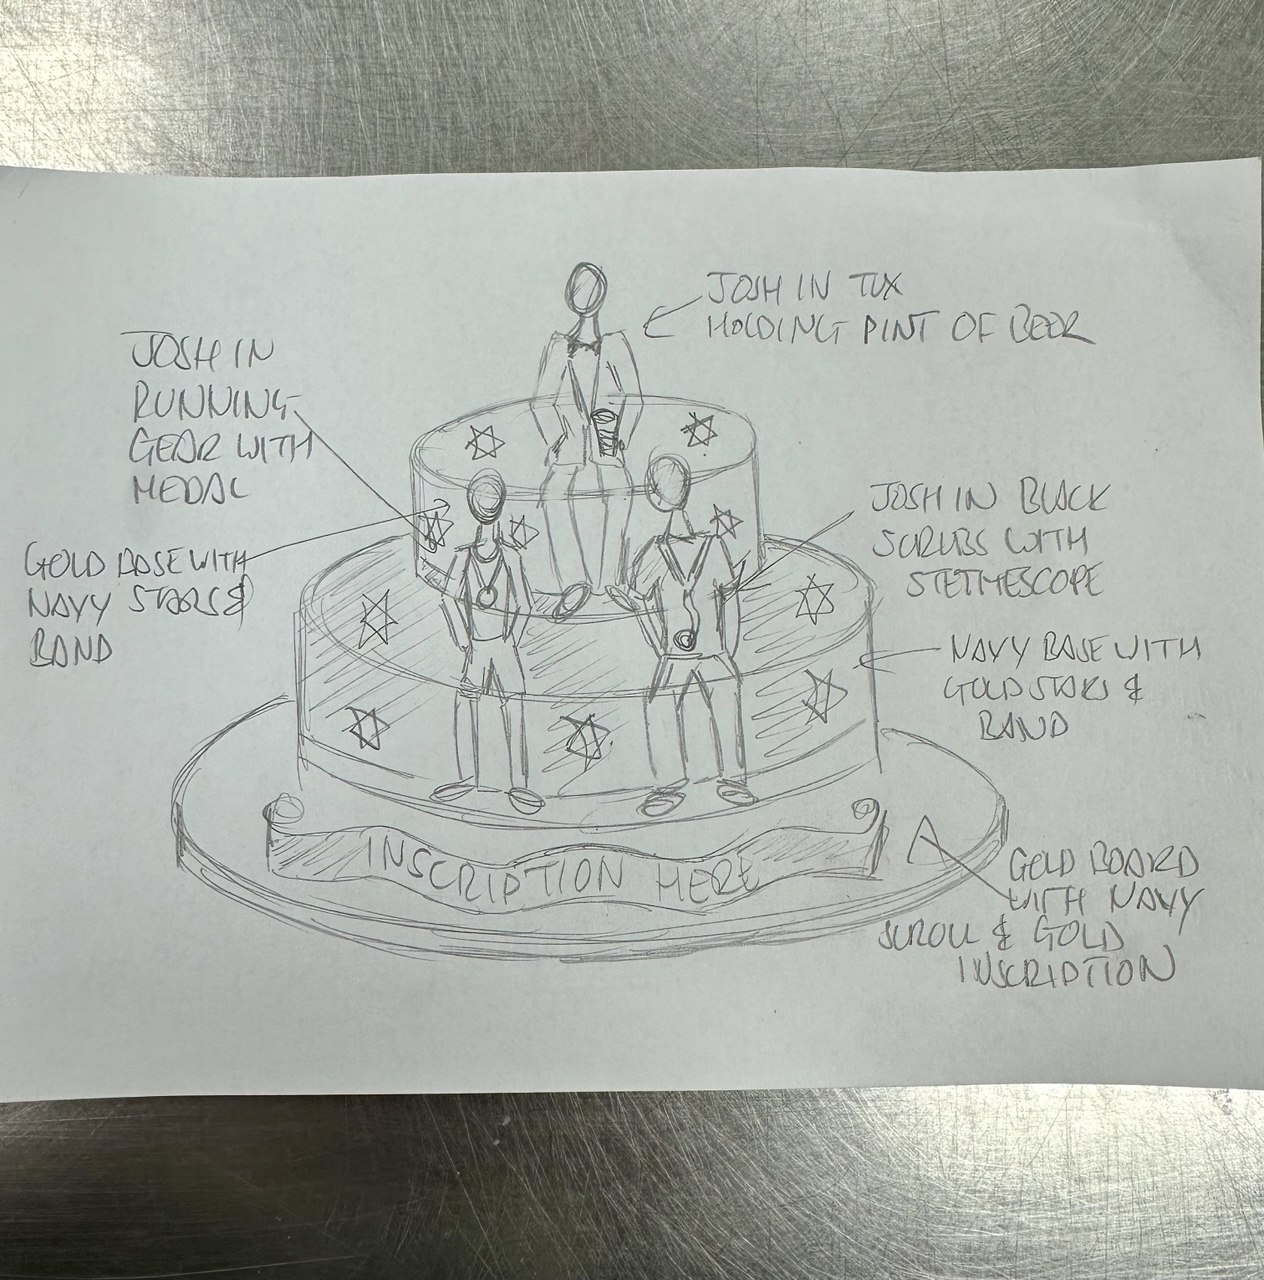 JOSH IN TUX
HOLDING PINT OF BEER
JOSH IN
RUNNING
GEAR WITH
MEDAL
GOLD BASE WITH
NAVY STARS &
BAND
JOSH IN BLACK
SCRUBS WITH
STETHESCOPE
NAVY BASE WITH
GOLD STARS &
BAND
INSCRIPTION HERE
GOLD BOARD
WITH NAVY
SCROLL & GOLD
INSCRIPTION